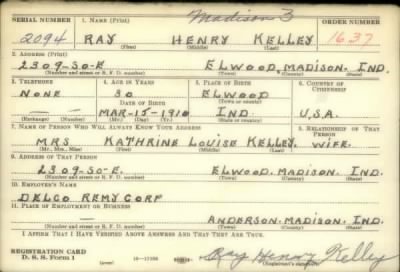 Madison 3
SERIAL NUMBER 1. NAME (Print) ORDER NUMBER
2094 RAY HENRY KELLEY 1637
(First) (Middle) (Last)
2. ADDRESS (Print)
2309-SO-E ELWOOD, MADISON. IND.
(Number and street or R. F. D. number) (Town) (County) (State)
3. TELEPHONE 4. AGE IN YEARS 5. PLACE OF BIRTH 6. COUNTRY OF CITIZENSHIP
NONE 30 ELWOOD
DATE OF BIRTH (Town or county)
— — MAR-15-1910 IND. U.S.A.
(Exchange) (Number) (Mo.) (Day) (Yr.) (State or country)
7. NAME OF PERSON WHO WILL ALWAYS KNOW YOUR ADDRESS 8. RELATIONSHIP OF THAT PERSON
MRS KATHRINE LOUISE KELLEY. WIFE.
(Mr., Mrs., Miss) (First) (Middle) (Last)
9. ADDRESS OF THAT PERSON
2309-SO-E. ELWOOD, MADISON. IND.
(Number and street or R. F. D. number) (Town) (County) (State)
10. EMPLOYER'S NAME
DELCO REMY CORP
11. PLACE OF EMPLOYMENT OR BUSINESS
— ANDERSON-MADISON. IND.
(Number and street or R. F. D. number) (Town) (County) (State)
I AFFIRM THAT I HAVE VERIFIED ABOVE ANSWERS AND THAT THEY ARE TRUE.
REGISTRATION CARD
D. S. S. Form 1 (over) 16—17105 Ray Henry Kelley
(Registrant's signature)